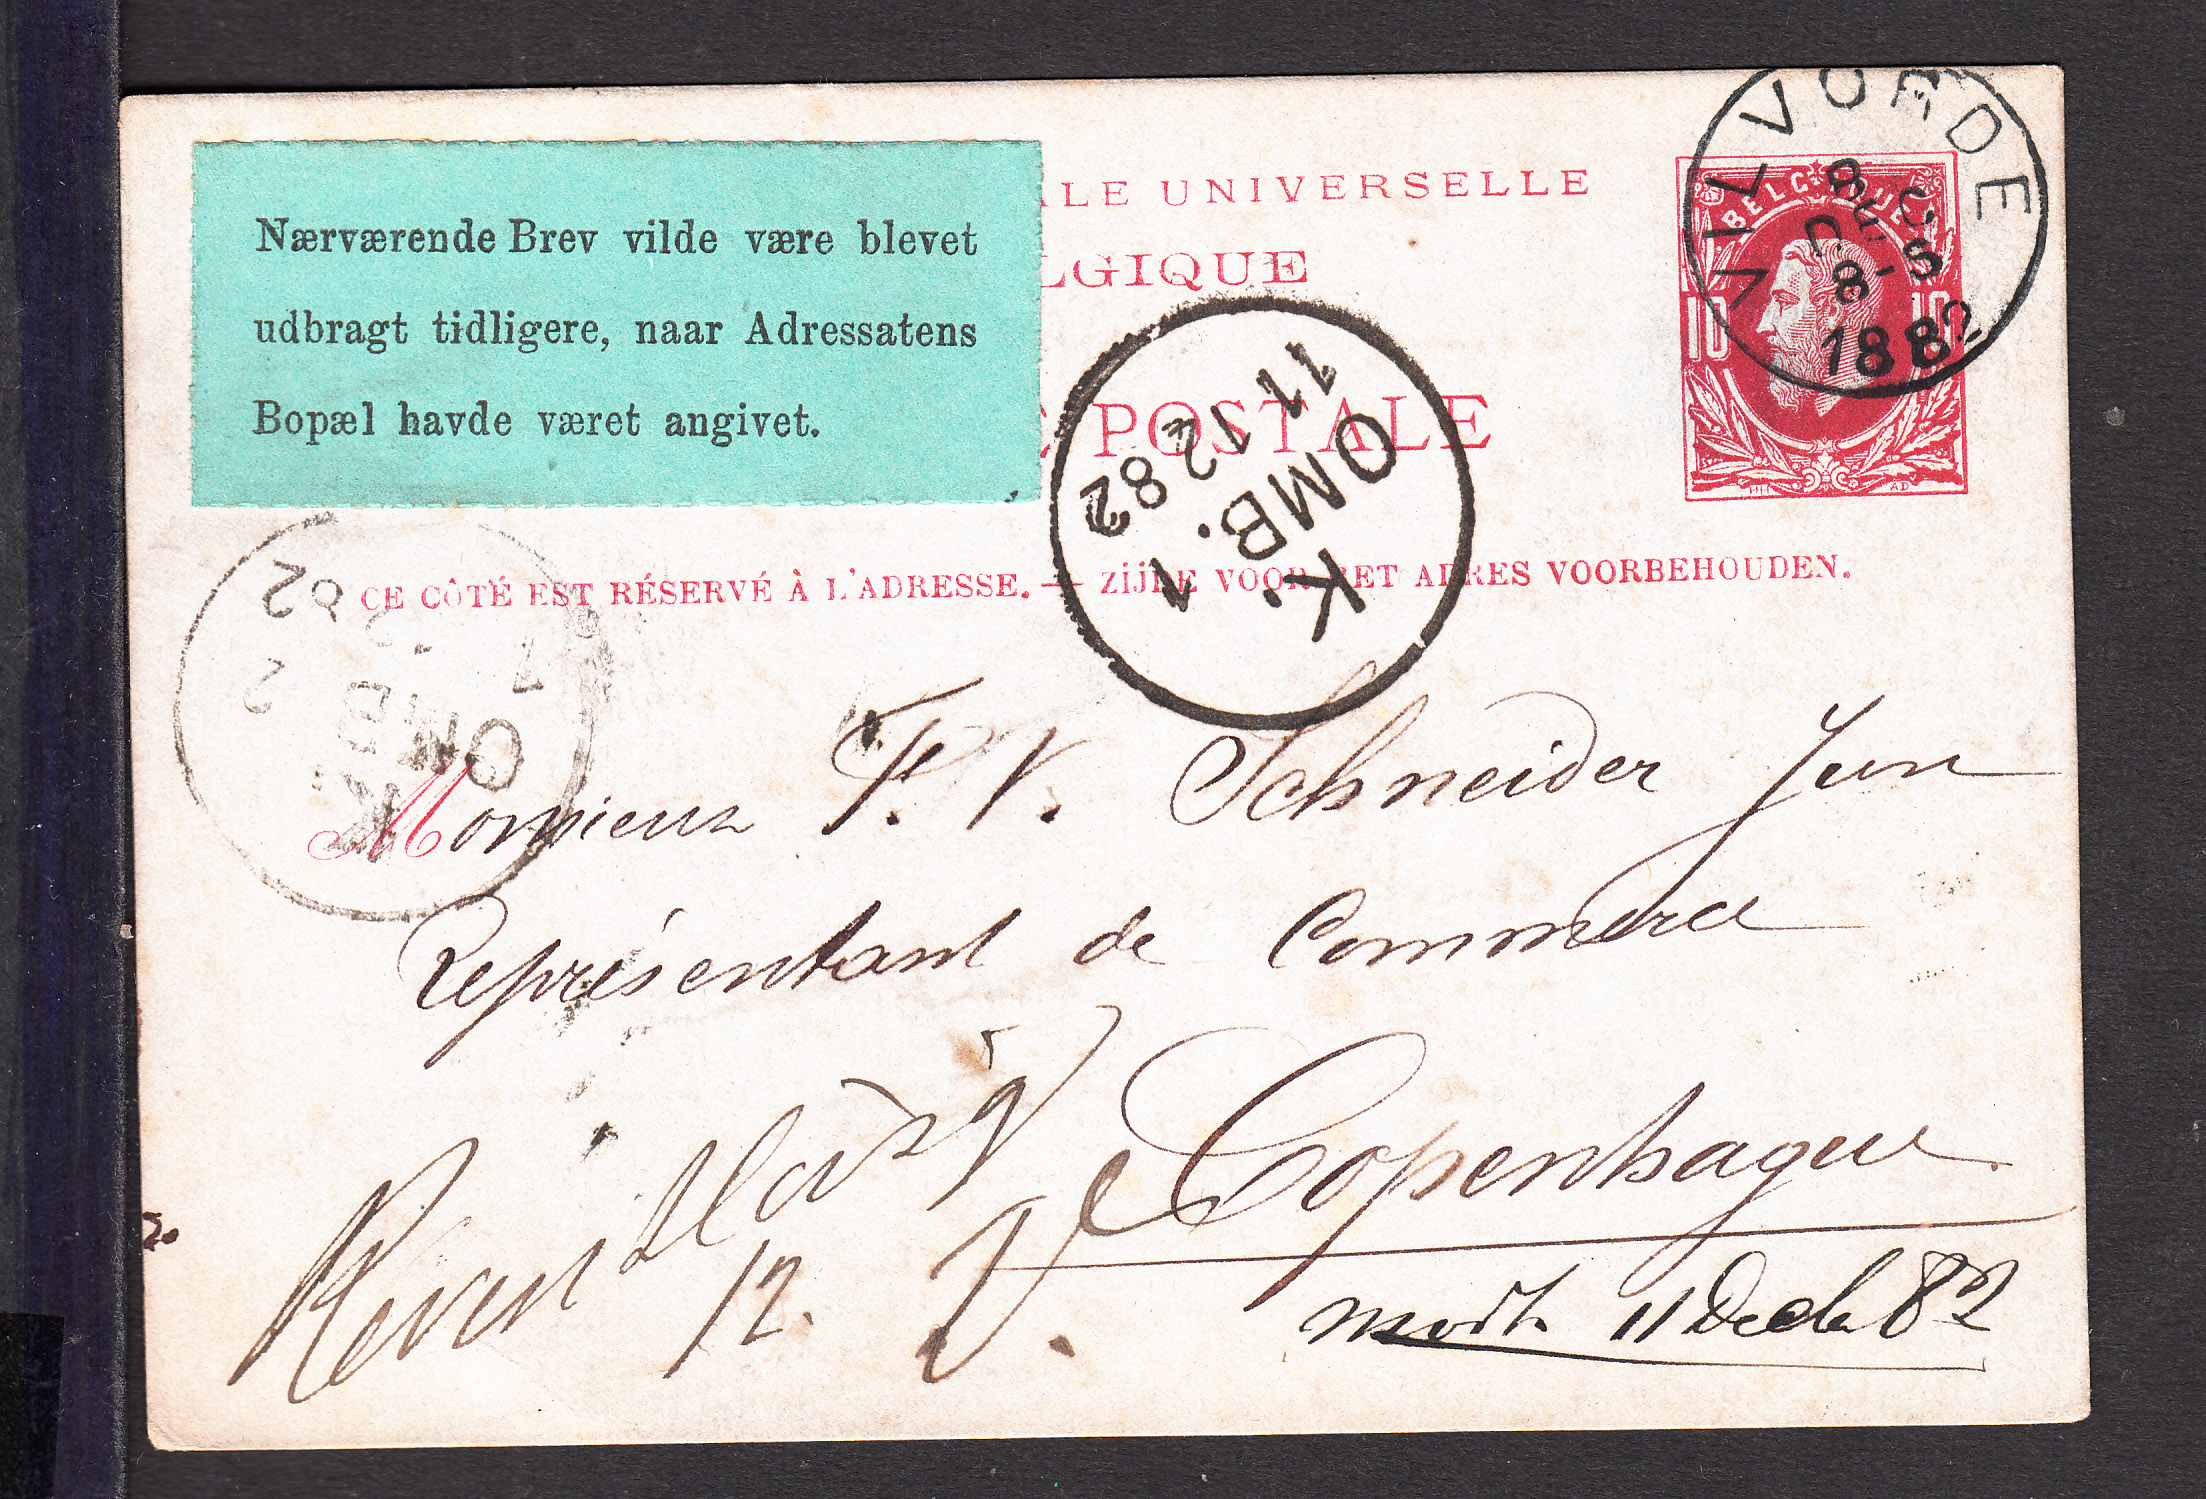 Nærværende Brev vilde være blevet
udbragt tidligere, naar Adressatens
Bopæl havde været angivet.
LE UNIVERSELLE
LGIQUE
POSTALE
BELGIQUE
10 10
VILVORDE
8
1882
K.
OMB. 1
11 12 82
CE CÔTÉ EST RÉSERVÉ À L'ADRESSE. — ZIJDE VOOR HET ADRES VOORBEHOUDEN.
K
OMB 2
7
82
Monsieur F. V. Schneider Jun
Représentant de Commerce
Copenhague
12.
modt. 11 Decb 82